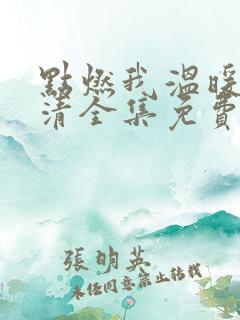 點燃我溫暖
清全集免費
張明英
未經同意禁止轉載